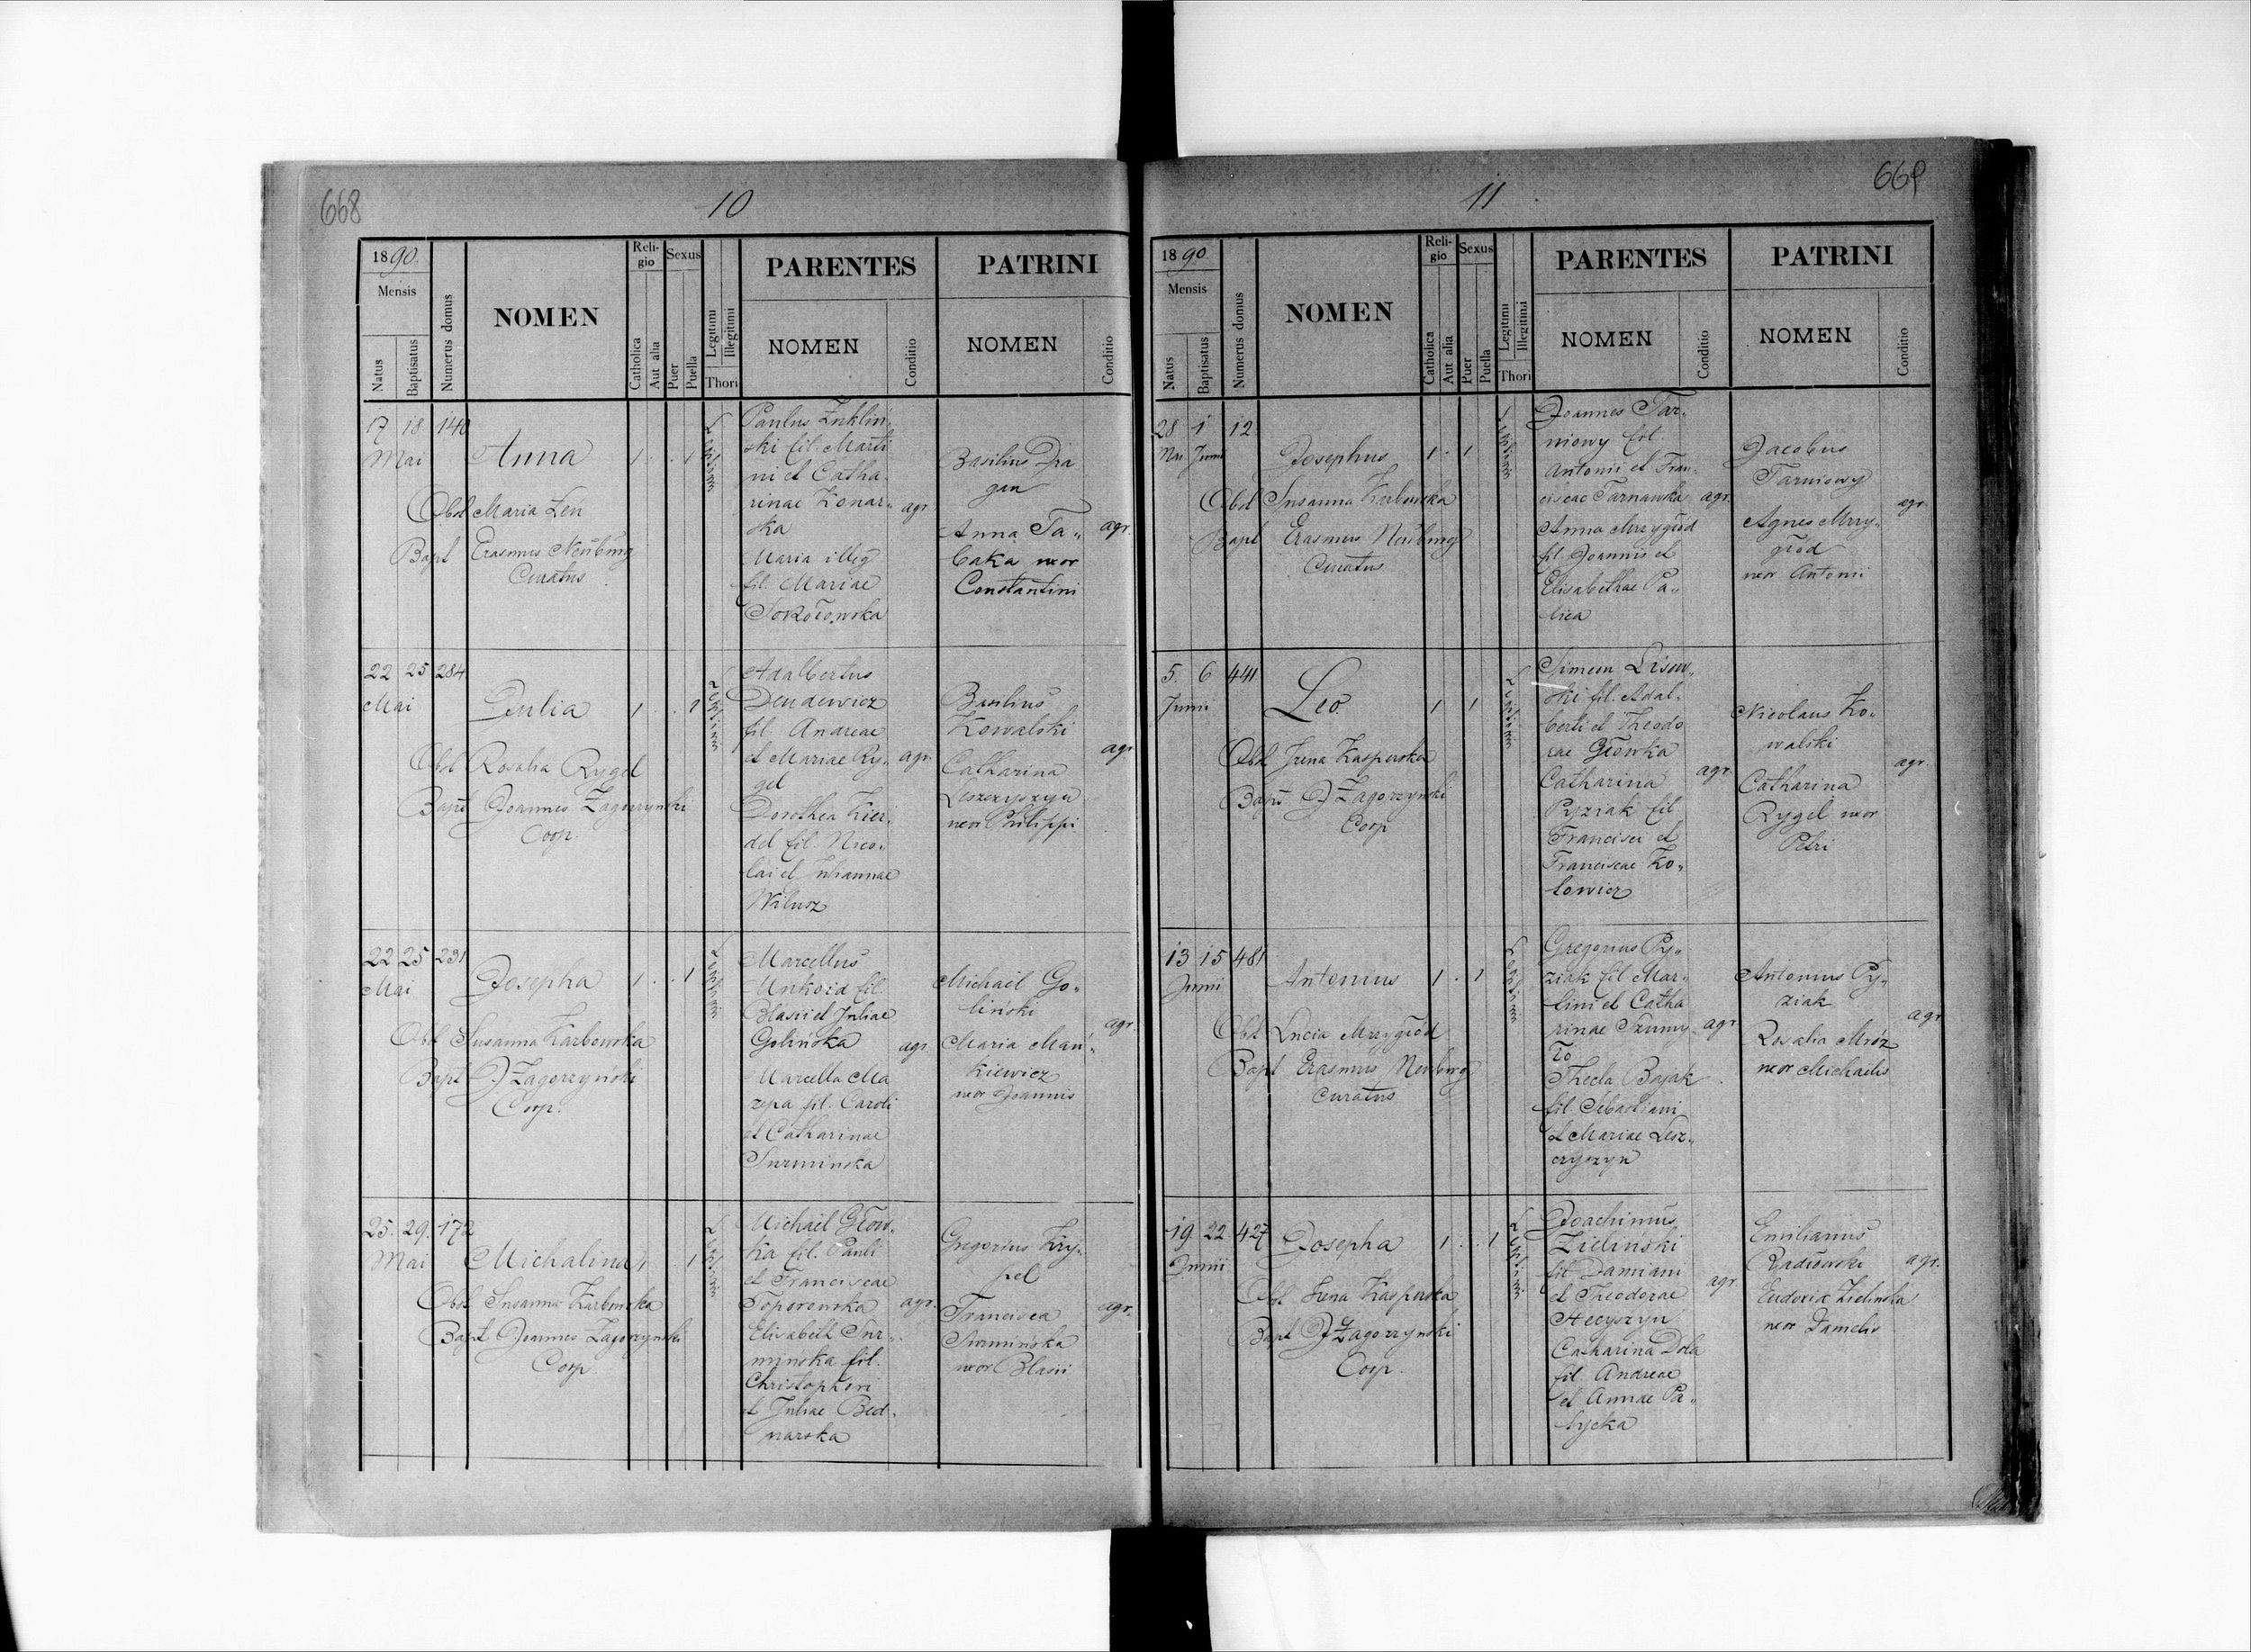 668
10
1890
Mensis
Natus
Baptisatus
Numerus domus
NOMEN
Reli-
gio
Catholica
Aut alia
Sexus
Puer
Puella
Legitimi
Illegitimi
Thori
PARENTES
NOMEN
Conditio
PATRINI
NOMEN
Conditio
17 18 140
Mai
Anna
1 . . 1
Legitimi
Obst Maria Leń
Bapt Erasmus Neuburg
Curatus
Paulus Żukliń
ski fil. Marti
ni et Catha
rinae Konar„
ska
Maria illeg
fil. Mariae
Sokołowska
agr
Basilius Dra
gan
Anna Ta„
baka uxor
Constantini
agr.
22 25 284
Mai
Julia
1 . . 1
Legitimi
Obst Rosalia Rygel
Bapt Joannes Zagorzynski
Coop.
Adalbertus
Dendewicz
fil. Andreae
et Mariae Ry„
gel
Dorothea Kier„
del fil. Nico„
lai et Juliannae
Wilusz
agr.
Basilius
Kowalski
Catharina
Leszczyszyn
uxor Philippi
agr
22 25 231
Mai
Josepha
1 . . 1
Legitimi
Obst Susanna Karbowska
Bapt J Zagorzynski
Coop.
Marcellus
fil.
Blasii et Juliae
Golińska
Marcella Ma
zepa fil. Caroli
et Catharinae
Surmińska
agr.
Michael Go„
liński
Maria Mań„
kiewicz
uxor Joannis
agr.
25. 29. 172
Mai
Michalina
1 . . 1
Legitimi
Obst Susanna Karbowska
Bapt Joannes Zagorzynski
Coop.
Michael Głow„
ka fil. Pauli
et Franciscae
Toporowska
Elisabeth Sur„
mińska fil.
Christophori
et Juliae Bed„
narska
agr.
Gregorius Kry„
pel
Francisca
Surmińska
uxor Blasii
agr.
669
11
1890
Mensis
Natus
Baptisatus
Numerus domus
NOMEN
Reli-
gio
Catholica
Aut alia
Sexus
Puer
Puella
Legitimi
Illegitimi
Thori
PARENTES
NOMEN
Conditio
PATRINI
NOMEN
Conditio
28 1 12
Mai Junii
Josephus
1 . 1
Legitimi
Obst Susanna Karbowska
Bapt Erasmus Neuburg
Curatus
Joannes Tar„
niowy fil.
Antonii et Fran„
ciscae Tarnawska
Anna Mrzygłód
fil. Joannis et
Elisabethae Pa„
lica
agr.
Jacobus
Tarniowy
Agnes Mrzy„
głód
uxor Antonii
agr.
5. 6 441
Junii
Leo.
1 1
Legitimi
Obst Irena Kasperska
Bapt J Zagorzynski
Coop
Simeon Lisow„
ski fil. Adal„
berti et Theodo
rae Głowka
Catharina
Pyziak fil
Francisci et
Franciscae Ko„
towicz
agr.
Nicolaus Ko„
walski
Catharina
Rygel uxor
Petri
agr.
13 15 481
Junii
Antonius
1 . 1
Legitimi
Obst Lucia Mrzygłód
Bapt Erasmus Neuburg
Curatus
Gregorius Py„
ziak fil Mar„
tini et Catha
rinae Szumy
ło
Thecla Bojak
fil Sebastiani
et Mariae Lesz„
czyszyn
agr.
Antonius Py„
ziak
Rosalia Mróz
uxor Michaelis
agr
19 22 427
Junii
Josepha
1 . . 1
Legitimi
Obst. Irena Kasperska
Bapt J Zagorzynski
Coop.
Joachimus
Zieliński
fil. Damiani
et Theodorae
Hecyszyn
Catharina Dola
fil. Andreae
et Annae Pa„
lycka
agr
Emilianus
Radłowski
Eudoxia Zielinska
uxor Danielis
agr.